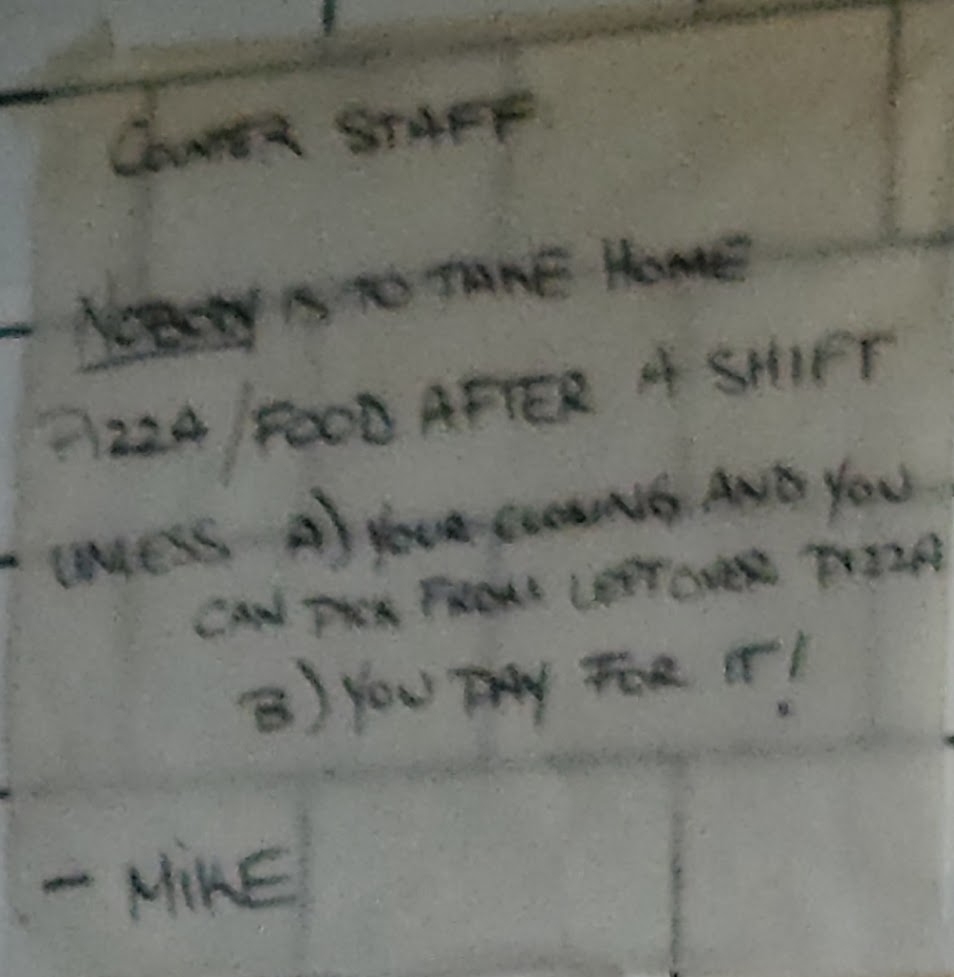 COUNTER STAFF
NOBODY IS TO TAKE HOME
PIZZA/FOOD AFTER A SHIFT
UNLESS A) YOUR CLOSING AND YOU
CAN PICK FROM LEFTOVER PIZZA
B) YOU PAY FOR IT!
- MIKE